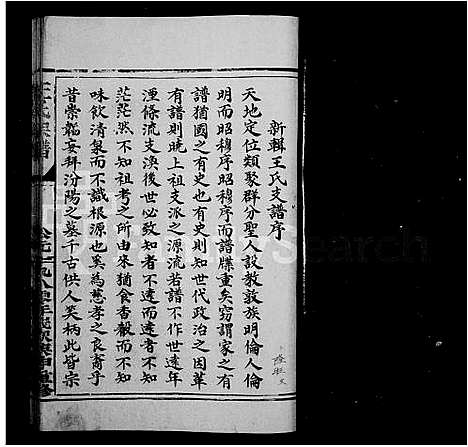 新輯王氏支譜序
天地定位類聚群分聖人設教敦族明倫人倫
明而昭穆序昭穆序而譜牒重矣竊謂家之有
譜猶國之有史也有史則知世代政治之因革
有譜則曉上祖支派之源流若譜不作世遠年
湮條流支渙後世必致知者不遠而遠者不知
茫茫然不知祖考之所由來猶食香穀而不
味飲清泉而不識根源也奚為慈孝之良裔乎
昔崇韜妄拜汾陽之墓千古供人笑柄此皆宗
王氏宗譜